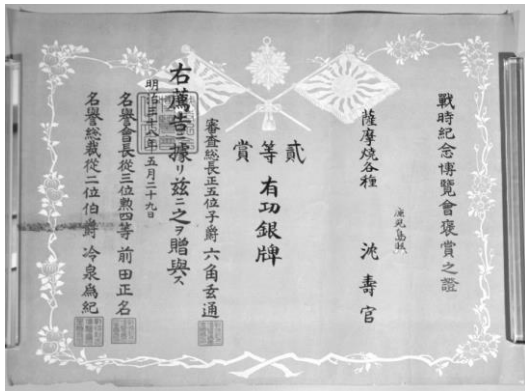 戰時紀念博覽會褒賞之證
鹿児島縣
薩摩燒各種　沈壽官
貳等賞　有功銀牌
審査總長正五位子爵　六角玄通
右薦告ニ據リ茲ニ之ヲ贈與ス
明治三十八年五月二十九日
名譽會長從三位勲四等　前田正名
名譽總裁從二位伯爵　冷泉爲紀